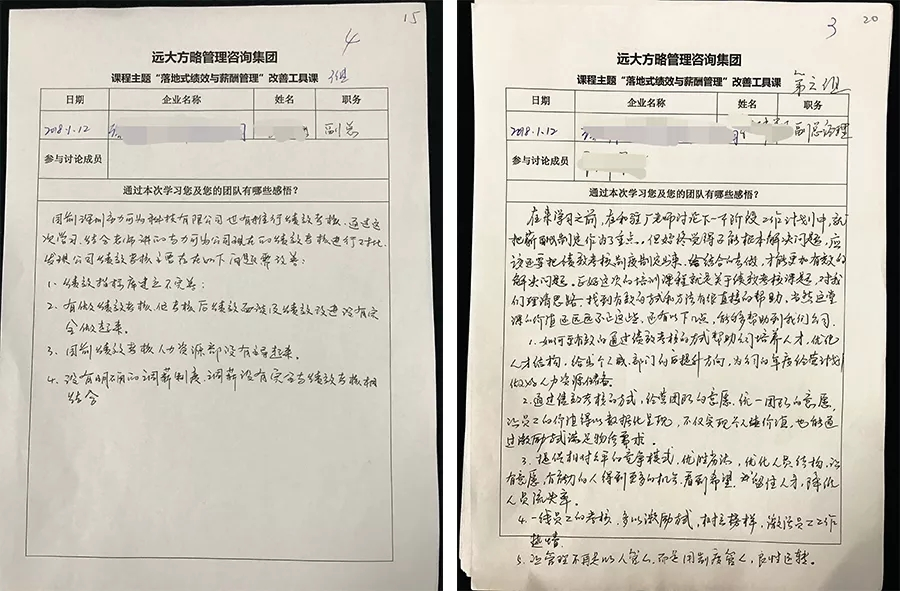 15
4
远大方略管理咨询集团
课程主题“落地式绩效与薪酬管理”改善工具课 3组
日期 企业名称 姓名 职务
2018.1.12 副总
参与讨论成员
通过本次学习您及您的团队有哪些感悟?
目前深圳市力可兴科技有限公司也有推行绩效考核、通过这
次学习、结合老师讲的与力可兴公司现在的绩效考核进行对比
发现公司绩效考核主要存在以下问题需改善:
1、绩效指标库建立不完善;
2、有做绩效考核、但考核后绩效面谈及绩效改进没有完
全做起来。
3、目前绩效考核人力资源部没有主导起来。
4、没有明确的调薪制度、调薪没有完全与绩效考核相
结合
20
3
远大方略管理咨询集团
课程主题“落地式绩效与薪酬管理”改善工具课 第三组
日期 企业名称 姓名 职务
2018.1.12 副总经理
参与讨论成员
通过本次学习您及您的团队有哪些感悟?
在来学习之前,在和驻厂老师讨论下一下阶段工作计划中,就
把薪酬制定作为了重点。但始终觉得不能根本解决问题,应
该还要把绩效考核制度制定出来,给结合的去做,才能更加有效的
解决问题。正好这次的培训课程就是关于绩效考核课题,对我
们理清思路,找到有效的方式和方法有很直接的帮助,当然这堂
课的价值远远不止这些,还有以下几点,能够帮助到我们公司.
1.如何更有效的通过绩效考核的方式帮助公司培养人才,优化
人才结构,给出个人或部门的再提升方向,为公司的年度经营计划
做好人力资源储备。
2.通过绩效考核的方式,经营团队的意愿,统一团队的意愿,
让员工的价值得以数据化呈现,不仅实现个人价值,也能通
过激励方式满足物质要求。
3.提供相对公平的竞争模式,优胜劣汰,优化人员结构,让
有意愿,有能力的人得到更多的机会,看到希望,留住人才,降低
人员流失率.
4.一线员工的考核,多以激励方式,树立榜样,激活员工工作
热情.
5.让管理不再是以人管人,而是用制度管人,良性运转。